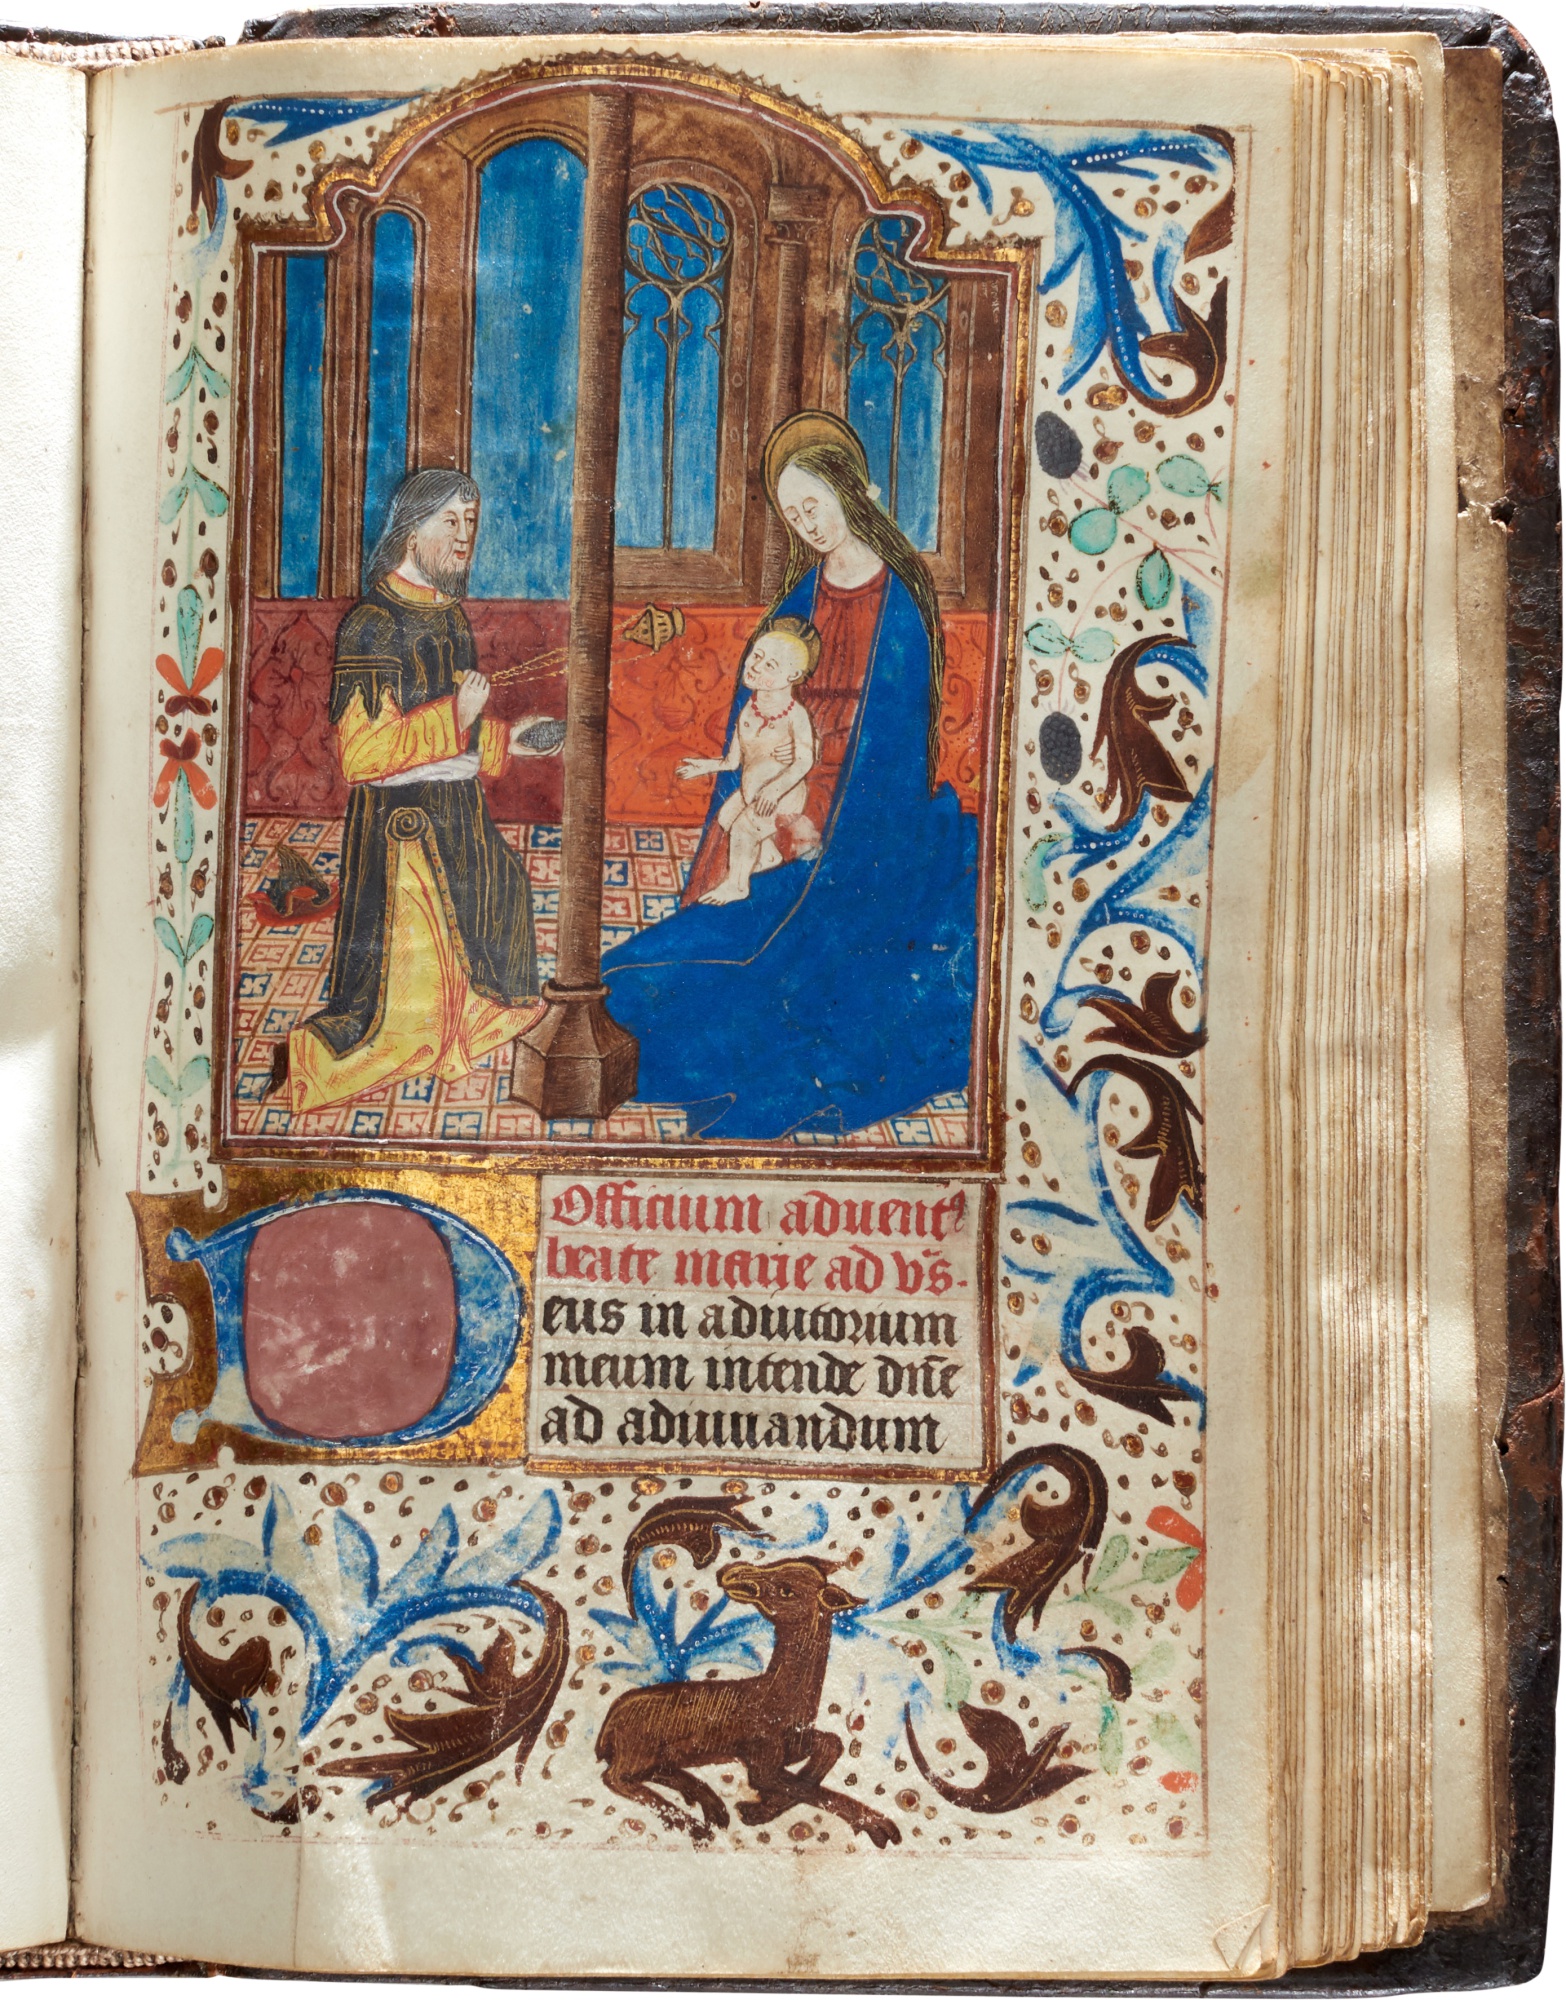 Officium aduentꝰ
beate marie ad vs̄.
Deus in adiutorium
meum intende dn̄e
ad adiuuandum